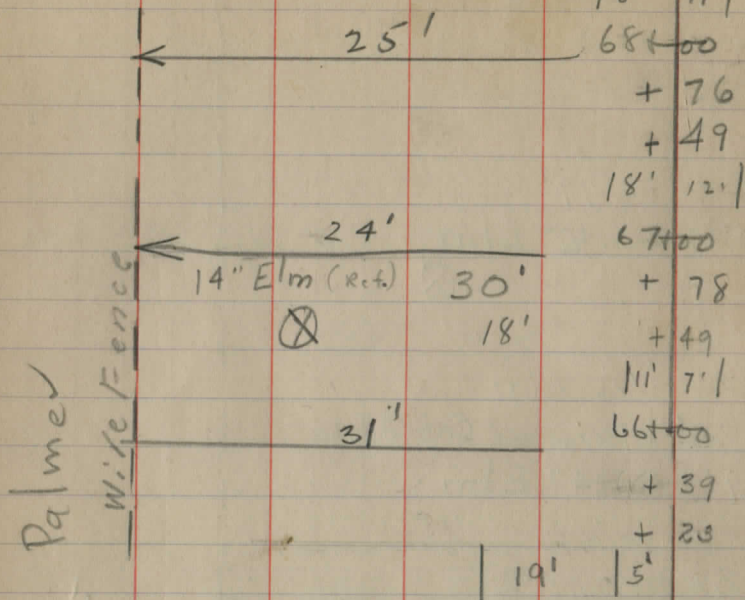 25' 68+00
+ 76
+ 49
18' 12'
24' 67+00
14" Elm (Ret.) 30' + 78
18' + 49
11' 7'
31' 66+00
+ 39
+ 23
19' 5'
Palmer
Wire Fence